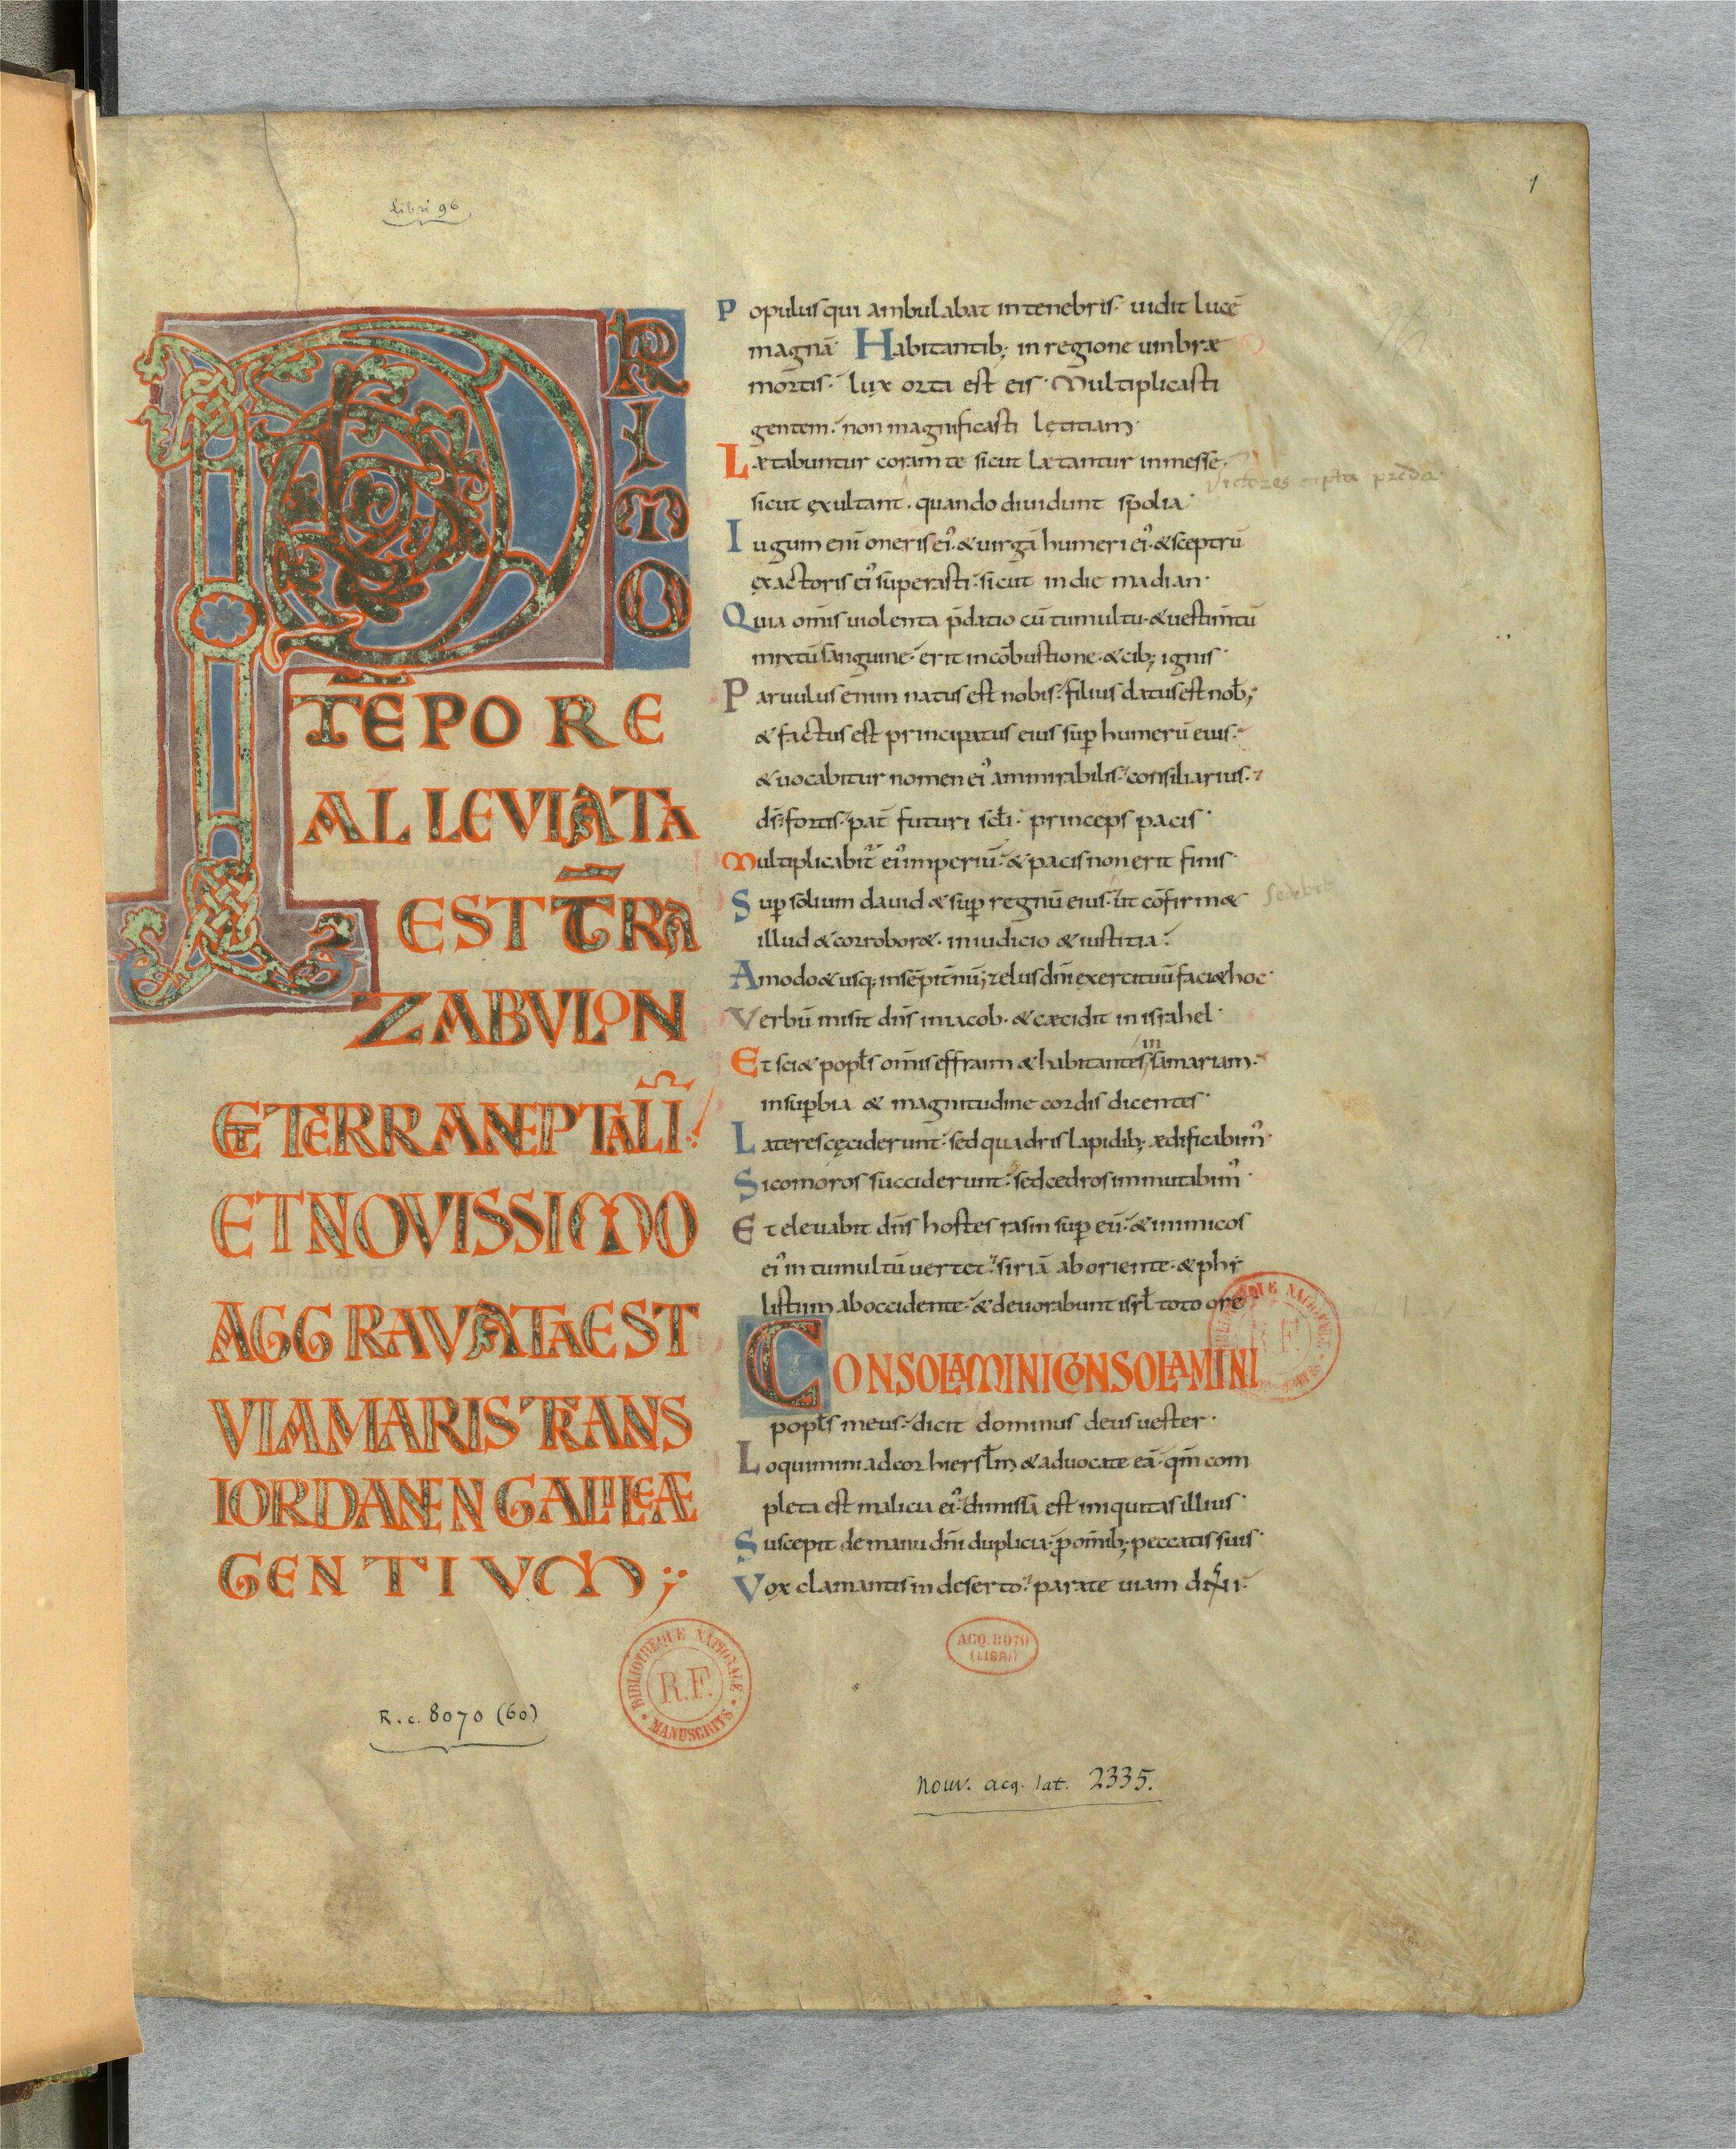 1
Libri 96
PRIMO
TĒPORE
ALLEVIATA
EST TR̄A
ZABVLON
ET TERRA NEPTALĪ
ET NOVISSIMO
AGGRAVATA EST
VIA MARIS TRANS
IORDANEN GALILEÆ
GENTIVM;
Populus qui ambulabat in tenebris· uidit lucē
magnā· Habitantib; in regione umbræ
mortis· lux orta est eis· Multiplicasti
gentem· non magnificasti lętitiam·
Lætabuntur coram te sicut lætantur in messe·
sicut exultant· quando diuidunt spolia·
Iugum enī oneris ei᾽· & uirgā humeri ei᾽· & sceptrū
exactoris ei᾽ superasti· sicut in die madian·
Quia om̄is uiolenta p̄datio cū tumultu· & uestim̄tū
mixtū sanguine· erit in cōbustione· & cib; ignis·
Paruulus enim natus est nobis· filius datus est nob̄;
& factus est principatus eius sup̱ humerū eius·
& uocabitur nomen ei᾽ ammirabilis· consiliarius·
dś· fortis· pat̄ futuri scł̄i· princeps pacis·
Multiplicabit᾽ ei᾽ imperiū· & pacis non erit finis·
Sup̱ solium dauid & sup̱ regnū eius· ut cōfirm&
illud & corrobor&· in iudicio & iustitia·
Amodo & usq; in sēpit̄nū; zelus dn̄i exercituū faci& hoc·
Verbū misit dn̄s in iacob· & cæcidit in israhel·
Et sci& popl̄s om̄is effraim & habitantes in samariam·
in sup̱bia & magnitudine cordis dicentes·
Lateres cęciderunt· sed quadris lapidib; ædificabim᾽·
Sicomoros succiderunt· sed cedros immutabim᾽·
Et eleuabit dn̄s hostes rasin sup̱ eū· & inimicos
ei᾽ in tumultū uertet· siriā ab oriente· & phi
listiim ab occidente· & deuorabunt isrł toto ore
CONSOLAMINI CONSOLAMINI
popl̄s meus· dicit dominus deus uester·
Loquimini ad cor hierl̄m & aduocate eā· qm̄ com
pleta est malicia ei᾽· dimissa est iniquitas illius·
Suscepit de manu dn̄i duplicia· ꝓ om̄ib; peccatis suis·
Vox clamantis in deserto· parate uiam
BIBLIOTHEQUE NATIONALE
R.F.
MANUSCRITS
ACQ. 8070
(LIBRI)
R.c. 8070 (60)
Nouv. acq. lat. 2335.